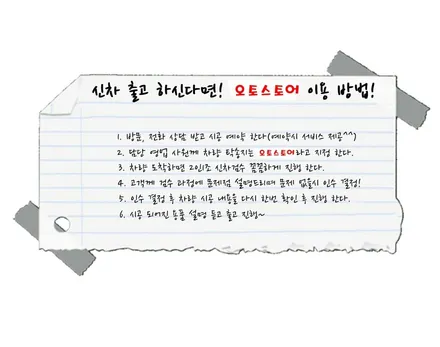 신차 출고 하신다면! 오토스토어 이용 방법!
1. 방문, 전화 상담 받고 시공 예약 한다(예약시 서비스 제공^^)
2. 담당 영업 사원께 차량 탁송지는 오토스토어라고 지정 한다.
3. 차량 도착하면 2인1조 신차검수 꼼꼼하게 진행 한다.
4. 고객께 검수 과정에 문제점 설명드리며 문제 없을시 인수 결정!
5. 인수 결정 후 차량 시공 내용을 다시 한번 확인 후 진행 한다.
6. 시공 되어진 용품 설명 듣고 출고 진행~